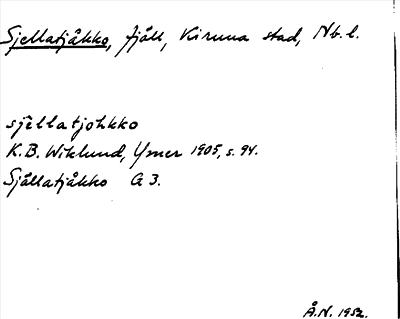 Sjellatjåkko, fjäll, Kiruna stad, Nb. l.
sjellatjohkko
K.B. Wiklund, Ymer 1905, s. 94.
Sjållatjåkko G 3.
Å.N. 1952.